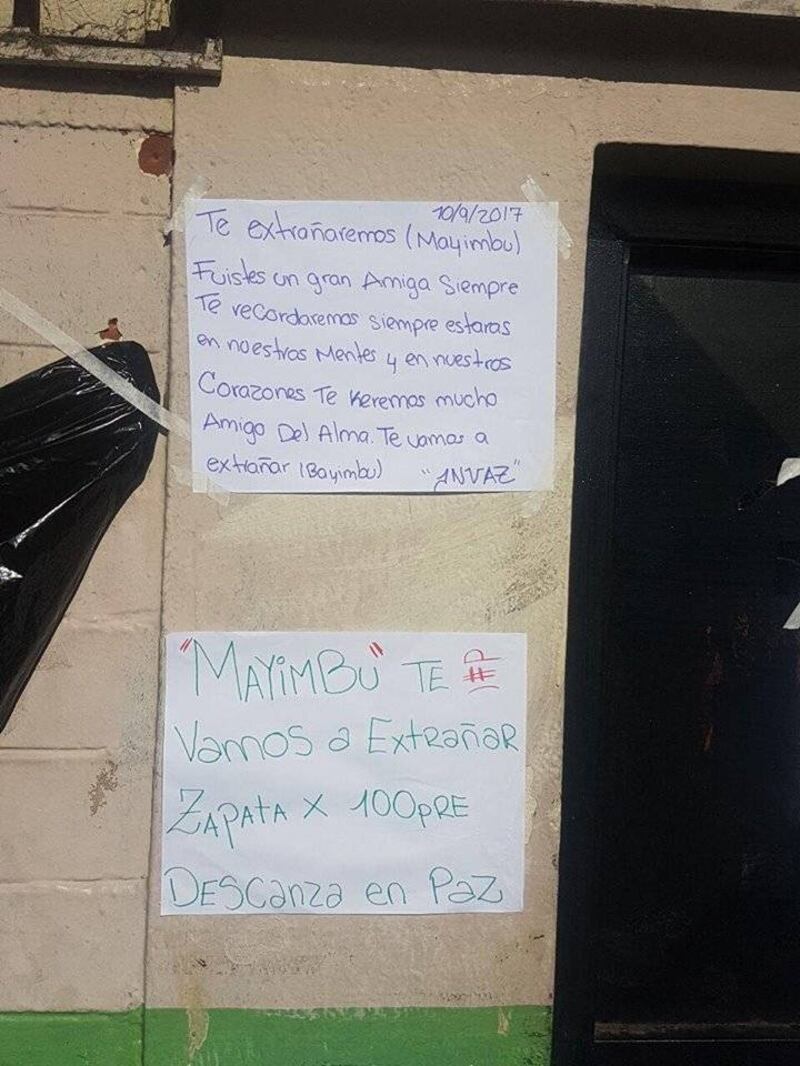 10/9/2017
Te extrañaremos (Mayimbu)
Fuistes un gran Amiga Siempre
Te recordaremos siempre estaras
en noestras Mentes y en nuestros
Corazones Te Keremos mucho
Amigo Del Alma. Te vamos a
extrañar (Bayimbu) "ANVAZ"
"MAYiMBU" TE
Vamos a Extrañar
ZAPAtA X 100PRE
DEScanza en Paz